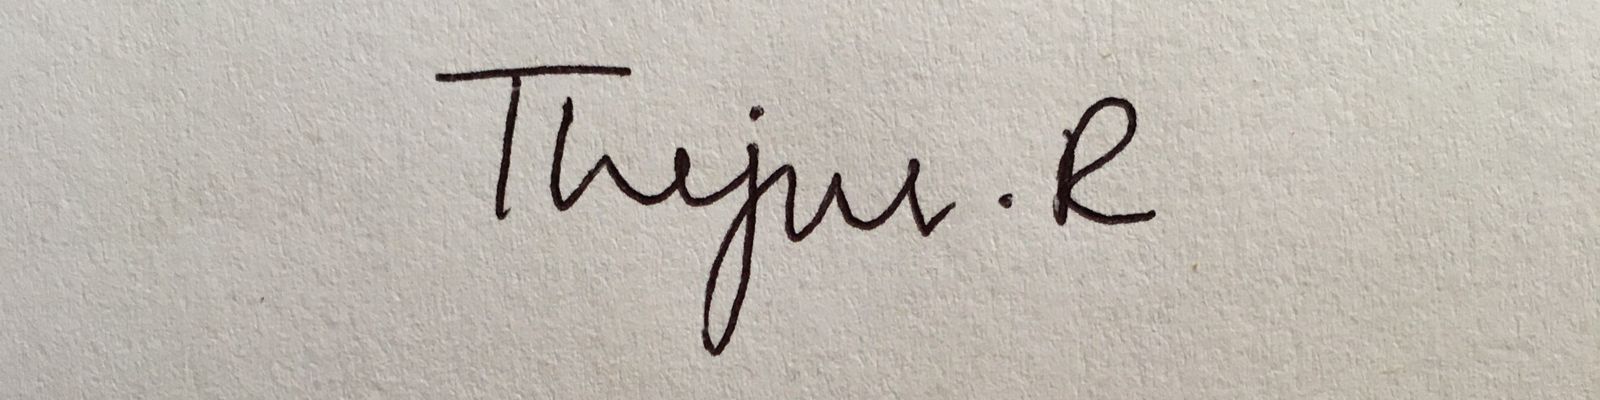 Thejus . R